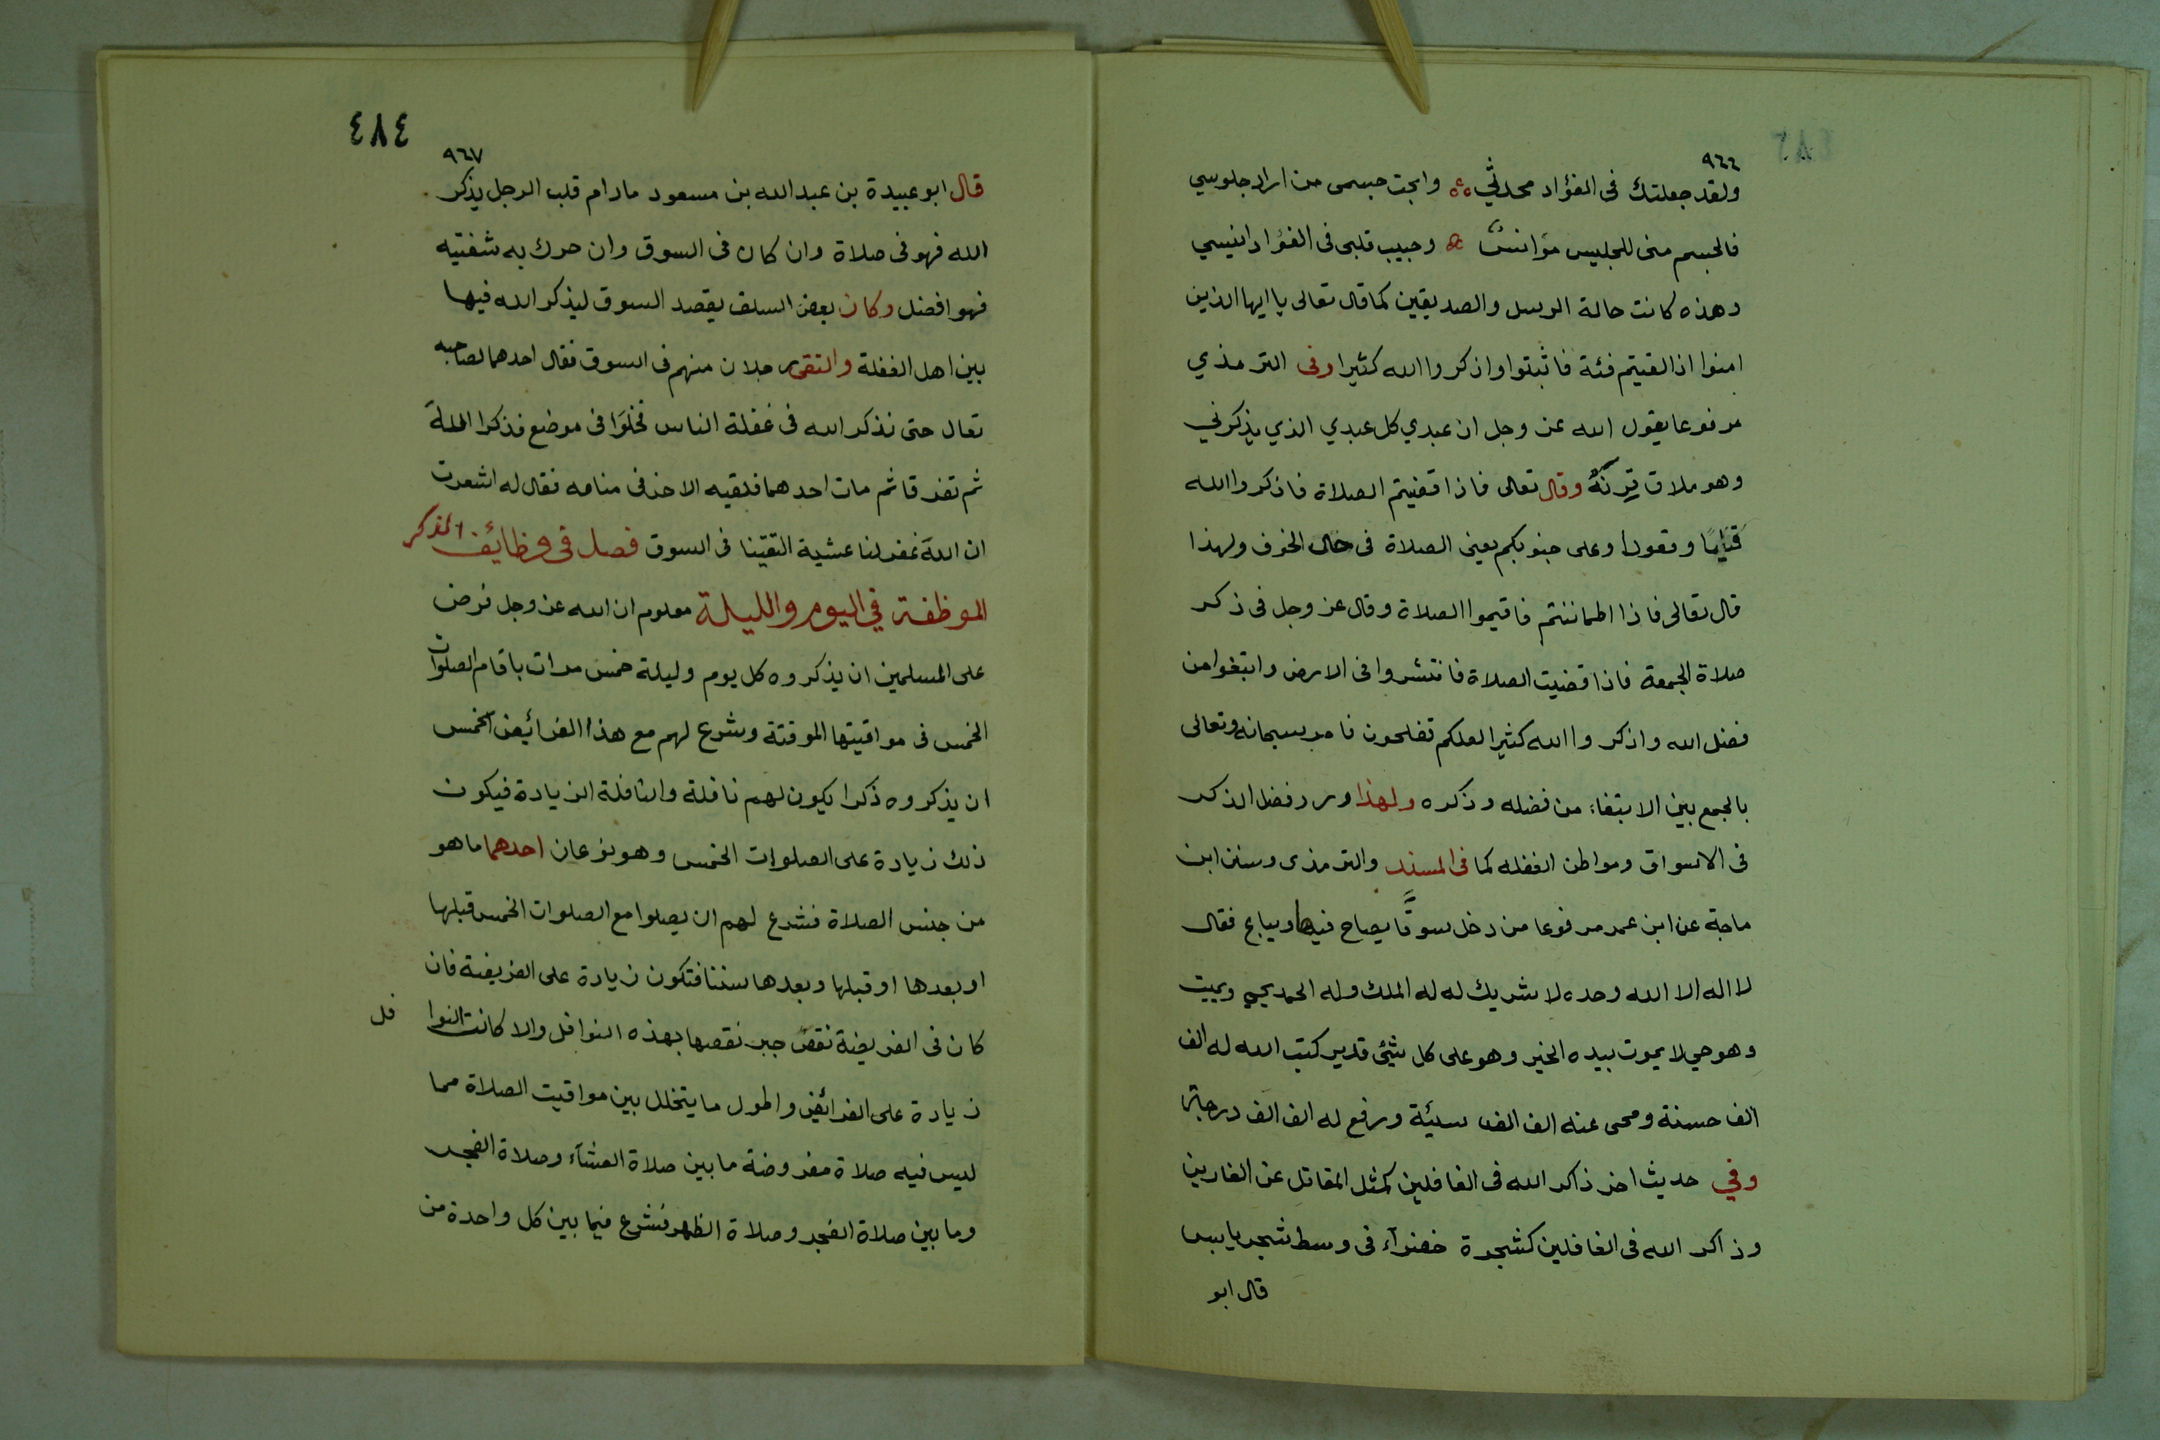 ٩٦٦
ولقد جعلتك فى الفؤاد محدثي وابحت جسمى من اراد جلوسي
فالجسم منى للجليس مؤانس وحبيب قلبى فى الفؤاد انيسي
وهذه كانت حالة الرسل والصديقين كما قال تعالى يا ايها الذين
امنوا اذا لقيتم فئة فاثبتوا واذكروا الله كثيرا وفى الترمذي
مرفوعا يقول الله عز وجل ان عبدي كل عبدي الذي يذكرني
وهو ملاق قرنه وقال تعالى فاذا قضيتم الصلاة فاذكروا الله
قياما وقعودا وعلى جنوبكم يعنى الصلاة فى حال الخوف ولهذا
قال تعالى فاذا اطماننتم فاقيموا الصلاة وقال عز وجل فى ذكر
صلاة الجمعة فاذا قضيت الصلاة فانتشروا فى الارض وابتغوا من
فضل الله واذكروا الله كثيرا لعلكم تفلحون فامر سبحانه وتعالى
بالجمع بين الابتغاء من فضله وذكره ولهذا ورد فضل الذكر
فى الاسواق ومواطن الغفله كما فى المسند والترمذى وسنن ابن
ماجة عن ابن عمر مرفوعا من دخل سوقا يصاح فيها ويباع فقال
لا اله الا الله وحده لا شريك له له الملك وله الحمد يحيي ويميت
وهو حي لا يموت بيده الخير وهو على كل شئ قدير كتب الله له الف
الف حسنة ومحى عنه الف الف سيئة ورفع له الف الف درجة
وفي حديث اخر ذاكر الله فى الغافلين كمثل المقاتل عن الفارين
وذاكر الله فى الغافلين كشجرة خضرآء فى وسط شجر يابس
قال ابو
٤٨٤
٩٦٧
قال ابو عبيدة بن عبد الله بن مسعود مادام قلب الرجل يذكر
الله فهو فى صلاة وان كان فى السوق وان حرك به شفتيه
فهو افضل وكان بعض السلف يقصد السوق ليذكر الله فيها
بين اهل الغفلة والتقى رجلان منهم فى السوق فقال احدهما لصاحبه
تعال حتى نذكر الله فى غفلة الناس فخلوا فى موضع فذكرا الله
ثم تفرقا ثم مات احدهما فلقيه الاخر فى منامه فقال له اشعرت
ان الله غفر لنا عشية التقينا فى السوق فصل في وظائف الذكر
الموظفة في اليوم والليلة معلوم ان الله عز وجل فرض
على المسلمين ان يذكروه كل يوم وليلة خمس مرات باقام الصلوات
الخمس فى مواقيتها الموقتة وشرع لهم مع هذا الفرائض الخمس
ان يذكروه ذكرا يكون لهم نافلة والنافلة الزيادة فيكون
ذلك زيادة على الصلوات الخمس وهو نوعان احدهما ما هو
من جنس الصلاة فشرع لهم ان يصلوا مع الصلوات الخمس قبلها
او بعدها او قبلها وبعدها سننا فتكون زيادة على الفريضة فان
كان فى الفريضة نقص جبر نقصها بهذه النوافل والا كانت النوا
فل
زيادة على الفرائض واطول ما يتخلل بين مواقيت الصلاة مما
ليس فيه صلاة مفروضة ما بين صلاة العشآء وصلاة الفجر
وما بين صلاة الفجر وصلاة الظهر فشرع فيما بين كل واحدة من